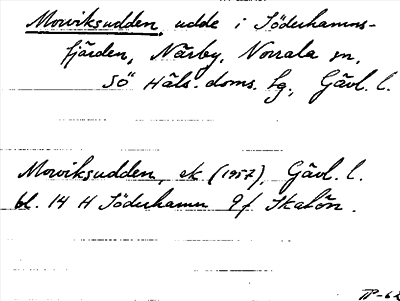 Morviksudden, udde i Söderhamns-
fjärden, Närby, Norrala sn,
SÖ Häls. doms. tg., Gävl. l.
Morviksudden, ek. (1957), Gävl. l.
bl. 14 H Söderhamn 9f Skatön.